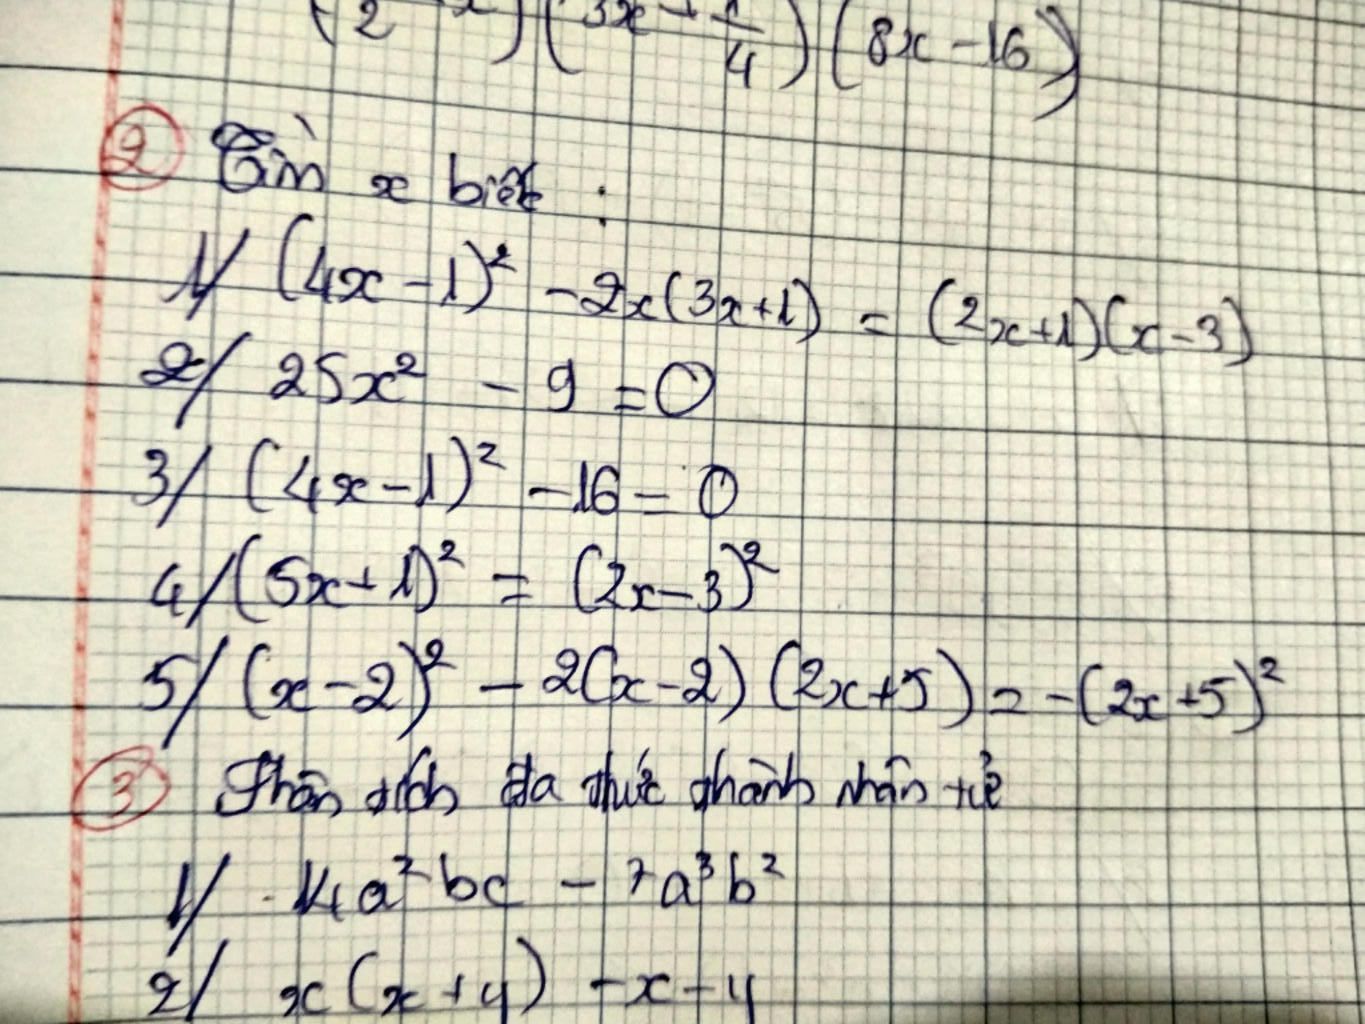 (8x - 16)
② Tìm x biết :
1/ (4x - 1)² - 2x(3x+1) = (2x+1)(x-3)
2/ 25x² - 9 = 0
3/ (4x - 1)² - 16 = 0
4/ (5x + 1)² = (2x - 3)²
5/ (x - 2)² - 2(x - 2)(2x + 5) = -(2x + 5)²
③ Phân tích đa thức thành nhân tử
1/ 14a²bc - 7a³b²
2/ x(x + y) - x - y